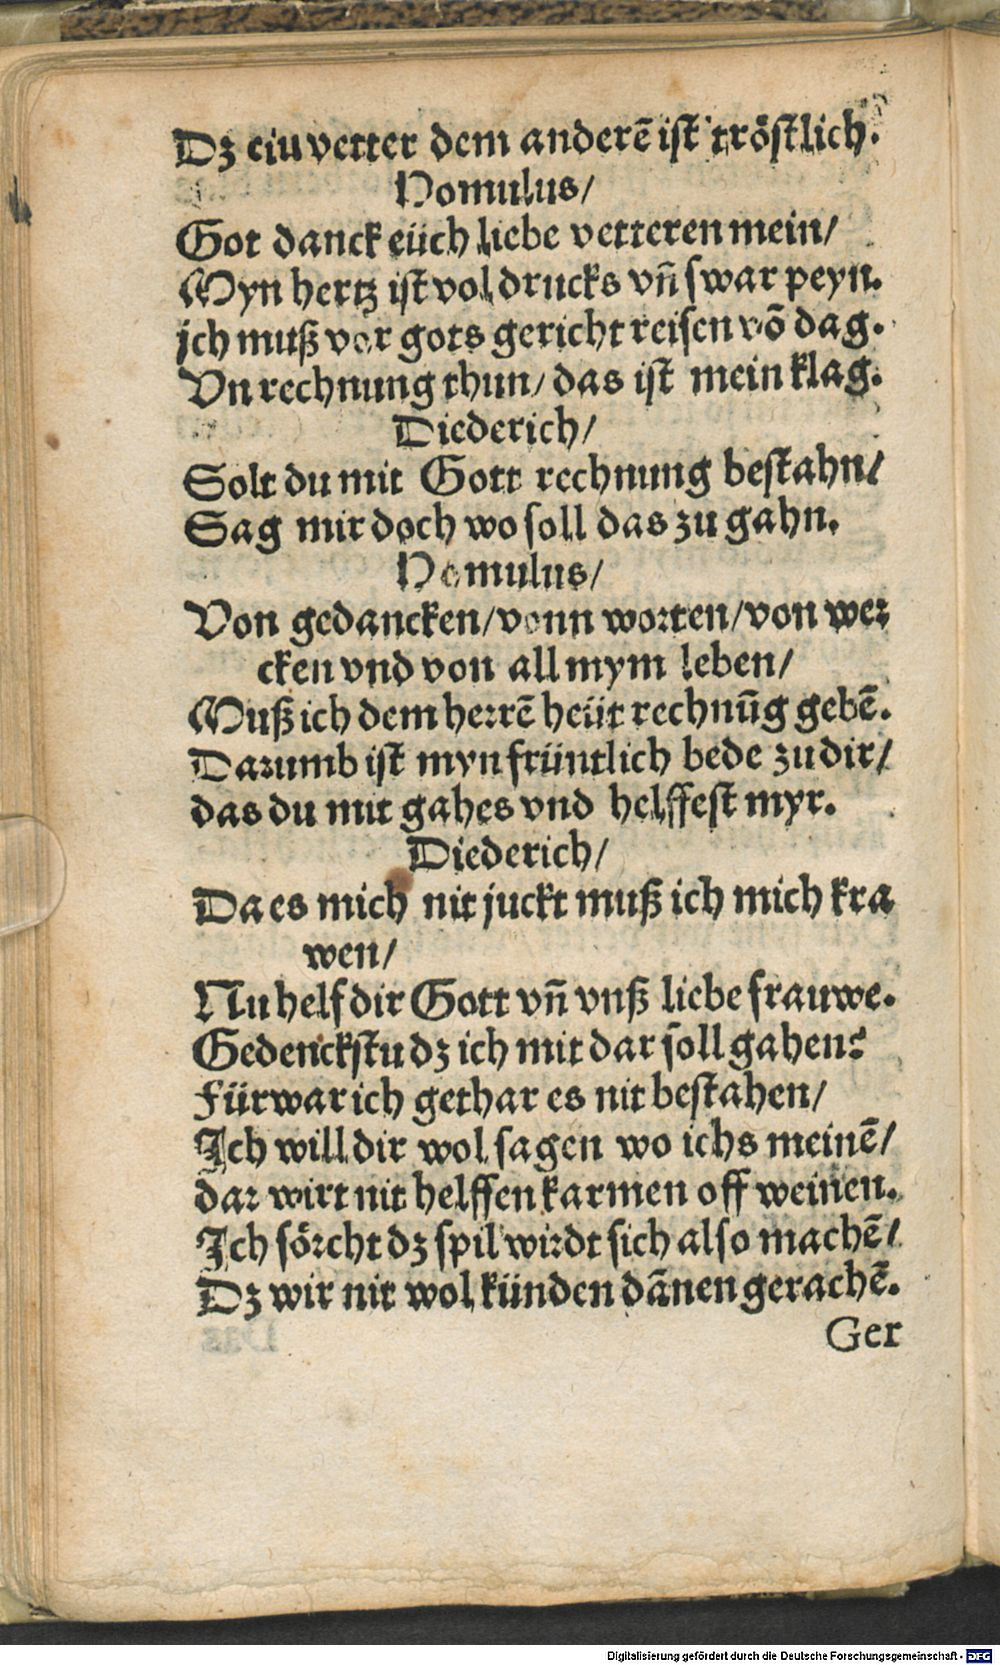 Dz eiu vetter dem anderē ist tröstlich.
Homulus/
Got danck eüch liebe vetteren mein/
Myn hertz ist vol drucks vn̄ swar peyn.
jch muß vor gots gericht reisen vō dag.
Vn rechnung thun/ das ist mein klag.
Diederich/
Solt du mit Gott rechnung bestahn/
Sag mir doch wo soll das zu gahn.
Homulus/
Von gedancken/ vonn worten/ von wer
cken vnd von all mym leben/
Muß ich dem herrē heüt rechnūg gebē.
Darumb ist myn früntlich bede zu dir/
das du mit gahes vnd helffest myr.
Diederich/
Da es mich nit juckt muß ich mich kra
wen/
Nu helf dir Gott vn̄ vnß liebe frauwe.
Gedenckstu dz ich mit dar soll gahen?
Fürwar ich gethar es nit bestahen/
Ich will dir wol sagen wo ichs meinē/
dar wirt nit helffen karmen off weinen.
Ich förcht dz spil wirdt sich also machē/
Dz wir nit wol künden dānen gerachē.
Ger
Digitalisierung gefördert durch die Deutsche Forschungsgemeinschaft - DFG